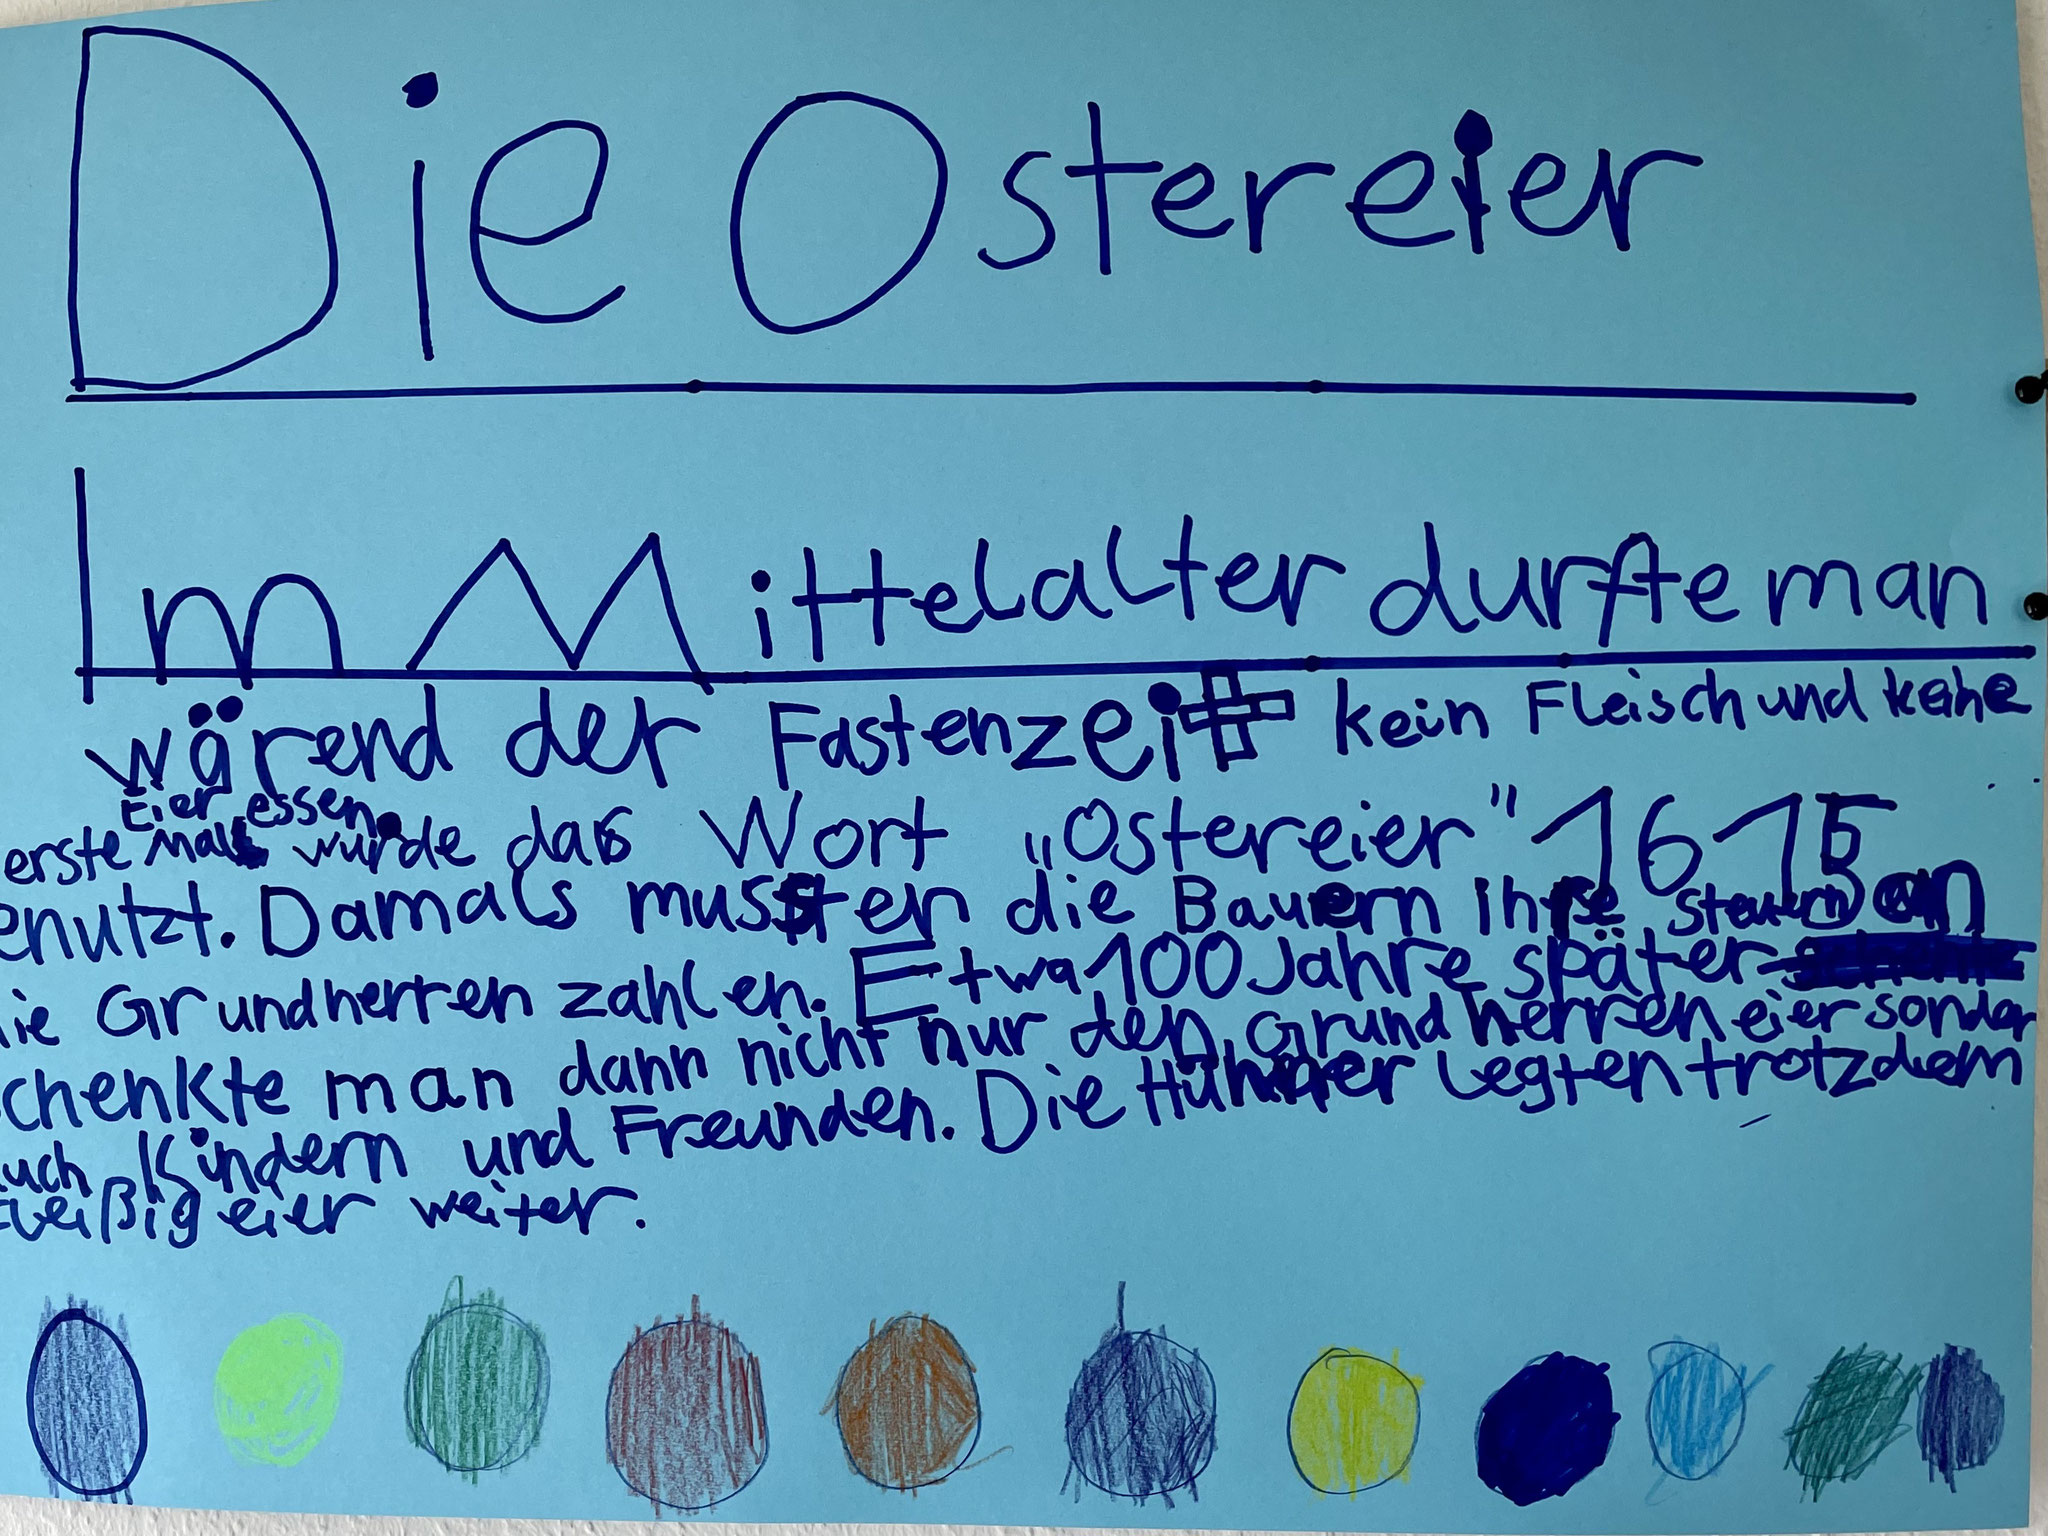 Die Ostereier
Im Mittelalter durfte man
wärend der Fastenzeit kein Fleisch und keine
Eier essen.
erste Mal wurde das Wort „Ostereier" 1615
enutzt. Damals mussten die Bauern ihre steuern an
ie Grundherren zahlen. Etwa 100 Jahre später
chenkte man dann nicht nur den Grundherren eier sonder
uch Kindern und Freunden. Die Hühner legten trotzdem
fleißig eier weiter.